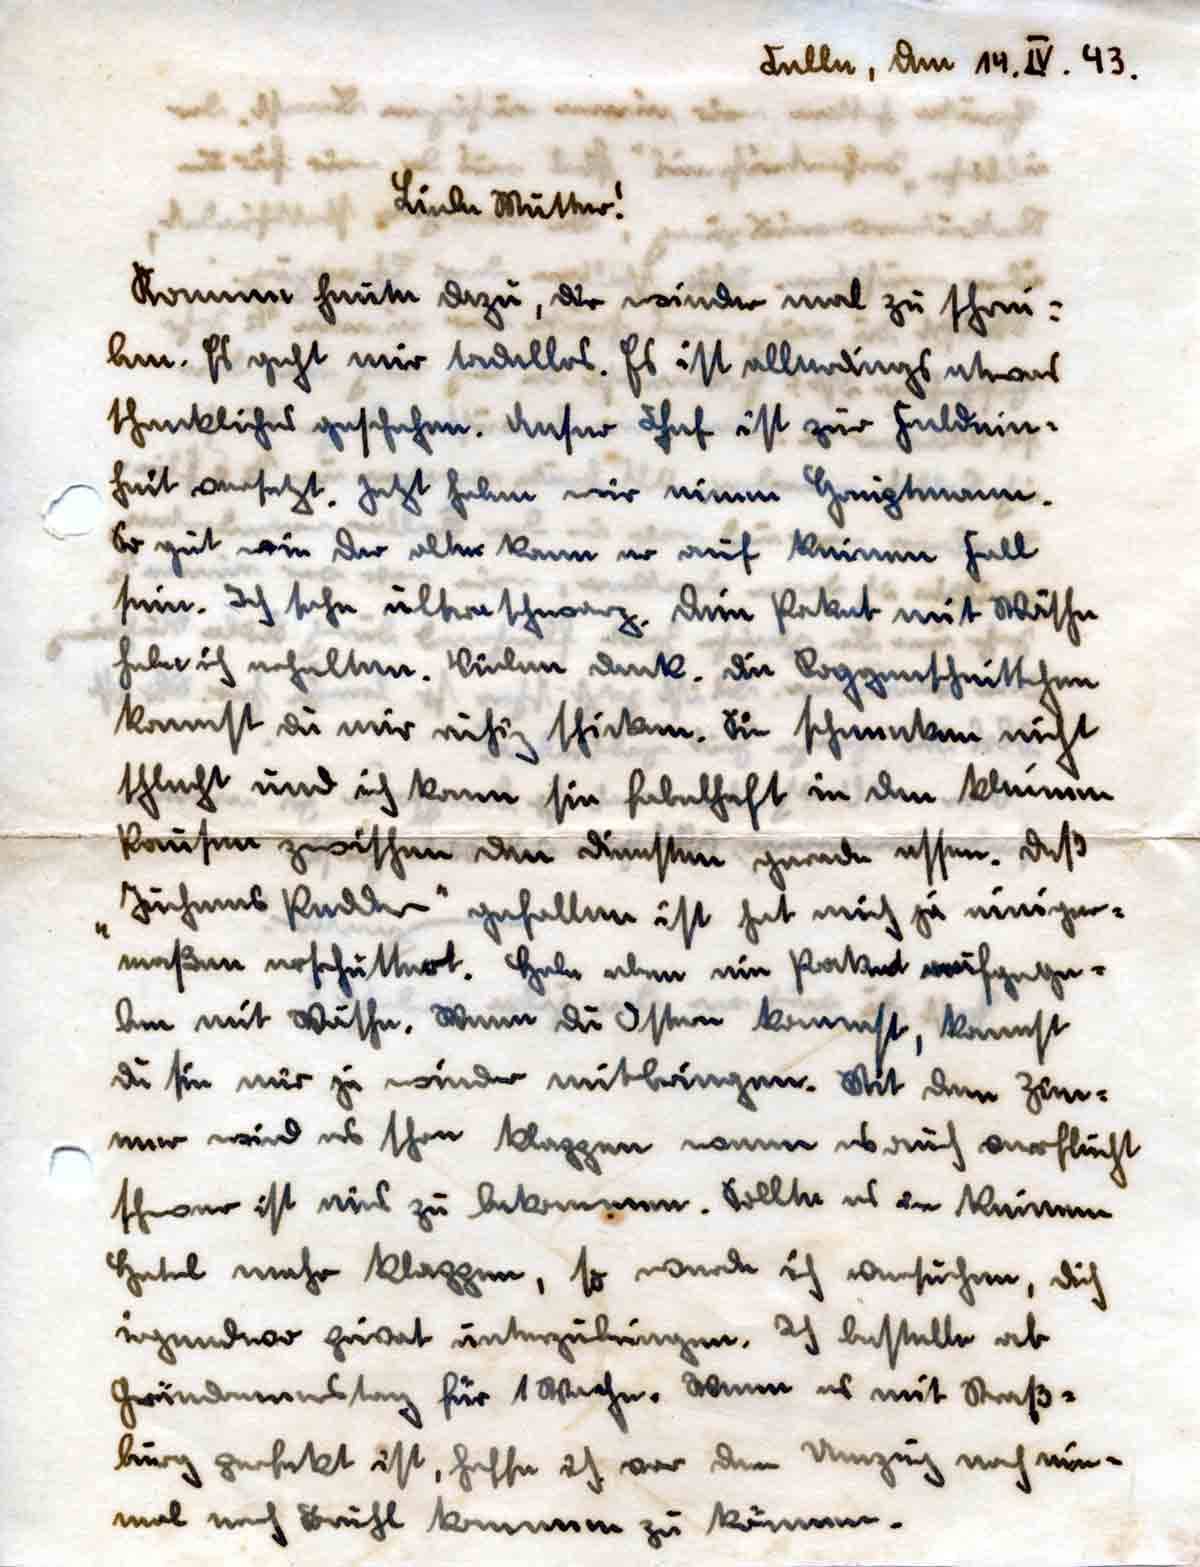 Fulda, den 14. IV. 43.
Liebe Mutter!
Komme heute dazu, dir wieder mal zu schrei-
ben. Es geht mir tadellos. Es ist allerdings etwas
schreckliches geschehen. Unser Chef ist zur Feldein-
heit versetzt. Jetzt haben wir einen Hauptmann.
So gut wie der alte kann er auf keinen Fall
sein. Ich sehe überall schwarz. Dein Paket mit Wäsche
habe ich erhalten. Vielen Dank. Die Roggenschnittchen
kannst du mir ruhig schicken. Sie schmecken nicht
schlecht und ich kann sie fabelhaft in den kleinen
Pausen zwischen den Diensten gerade essen. Daß
„ Pedder“ gefallen ist hat mich ja einiger-
maßen erschüttert. Habe eben ein Paket aufgege-
ben mit Wäsche. Wenn du Ostern kommst, kannst
du sie mir ja wieder mitbringen. Mit dem Zim-
mer wird es schon klappen wenn es auch verflucht
schwer ist eins zu bekommen. Sollte es in keinem
Hotel mehr klappen, so werde ich versuchen, dich
irgendwo privat unterzubringen. Ich bestelle ab
Gründonnerstag für 1 Woche. Wenn es mit Straß-
burg perfekt ist, hoffe ich vor dem Umzug noch ein-
mal nach Brühl kommen zu können.